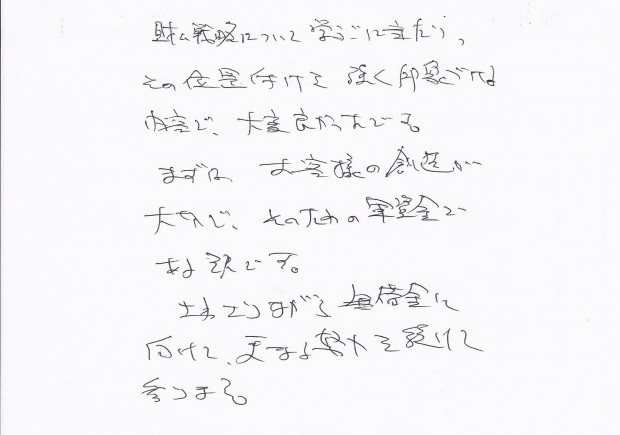 財ム戦略について学ぶに当たり、
その位置付けを強く印象づける
内容で、大変良かったです。
まずは お客様の創造が
大切で、そのための軍資金で
ある訳です。
土台づくりながら 無借金に
付けて、更なる努力を続けて
参ります。